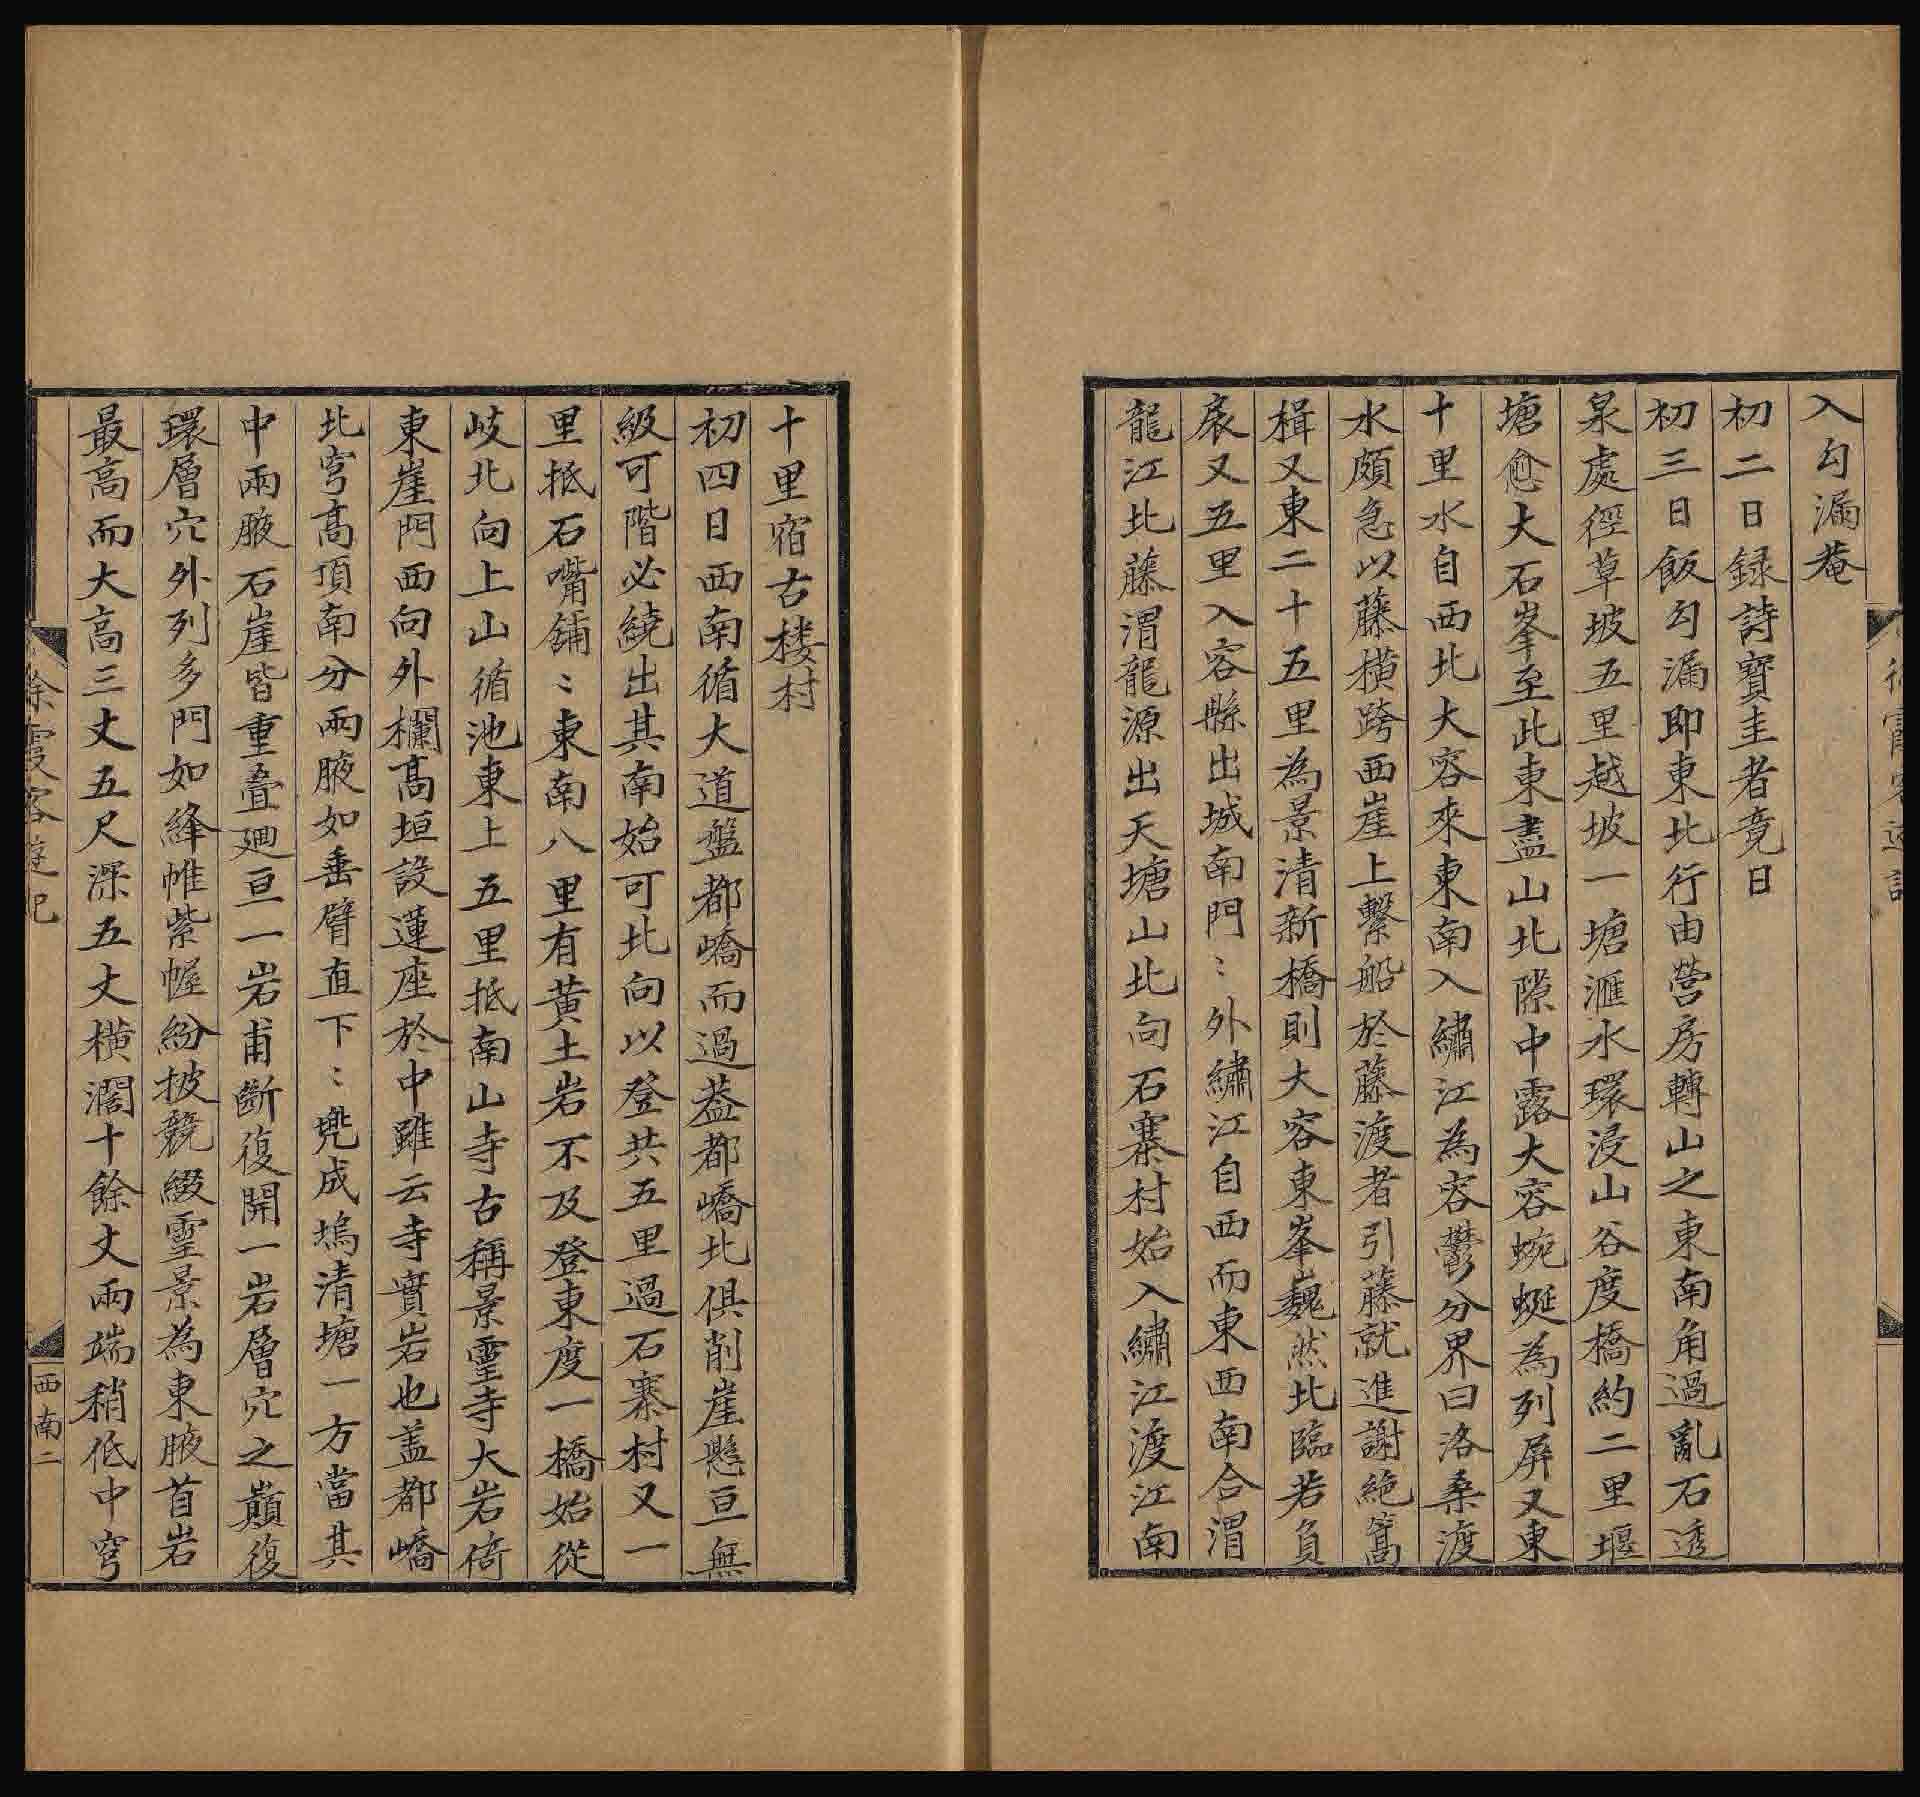 入勾漏菴
初二日録詩寶圭者竟日
初三日飯勾漏即東北行由營房轉山之東南角過亂石透
泉處徑草坡五里越坡一塘滙水環浸山谷度橋約二里堰
塘愈大石峯至此東盡山北隙中露大容蜿蜒為列屏又東
十里水自西北大容來東南入繡江為容鬱分界曰洛桑渡
水頗急以藤橫跨西崖上繫船於藤渡者引藤就進謝絶篙
楫又東二十五里為景清新橋則大容東峯巍然北臨若負
扆又五里入容縣出城南門〻外繡江自西而東西南合渭
龍江北藤渭龍源出天塘山北向石寨村始入繡江渡江南
十里宿古楼村
初四日西南循大道盤都嶠而過葢都嶠北俱削崖懸亘無
級可階必繞出其南始可北向以登共五里過石寨村又一
里抵石嘴鋪〻東南八里有黄土岩不及登東度一橋始從
岐北向上山循池東上五里抵南山寺古稱景靈寺大岩倚
東崖門西向外欄髙垣設蓮座於中雖云寺實岩也盖都嶠
北穹髙頂南分兩腋如垂臂直下〻兠成塢清塘一方當其
中兩腋石崖皆重疊廻亘一岩甫斷復開一岩層穴之巔復
環層穴外列多門如絳帷紫幄紛披競綴靈景為東腋首岩
最高而大高三丈五尺深五丈橫濶十餘丈兩端稍低中穹
徐霞客遊記
西南二